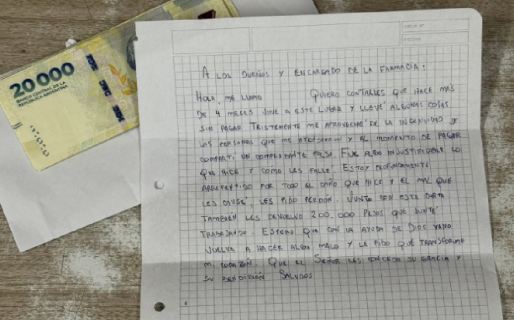 20000
BANCO CENTRAL DE LA
REPÚBLICA ARGENTINA
A LOS DUEÑOS Y ENCARGADO DE LA FARMACIA:
HOLA, ME LLAMO QUIERO CONTARLES QUE HACE MÁS
DE 4 MESES VINE A ESTE LUGAR Y LLEVÉ ALGUNAS COSAS
SIN PAGAR. TRISTEMENTE ME APROVECHÉ DE LA INGENUIDAD DE
LAS PERSONAS QUE ME ATENDIERON Y AL MOMENTO DE PAGAR
COMPARTÍ UN COMPROBANTE FALSO. FUE ALGO INJUSTIFICABLE LO
QUE HICE Y COMO LES FALLÉ. ESTOY PROFUNDAMENTE
ARREPENTIDO POR TODO EL DAÑO QUE HICE Y EL MAL QUE
LES CAUSÉ. LES PIDO PERDÓN. JUNTO CON ESTA CARTA
TAMBIÉN LES DEVUELVO 200.000 PESOS QUE JUNTÉ
TRABAJANDO. ESPERO QUE CON LA AYUDA DE DIOS NO
VUELVA A HACER ALGO MALO Y LE PIDO QUE TRANSFORME
MI CORAZÓN. QUE EL SEÑOR LES CONCEDA SU GRACIA Y
SU BENDICIÓN SALUDOS